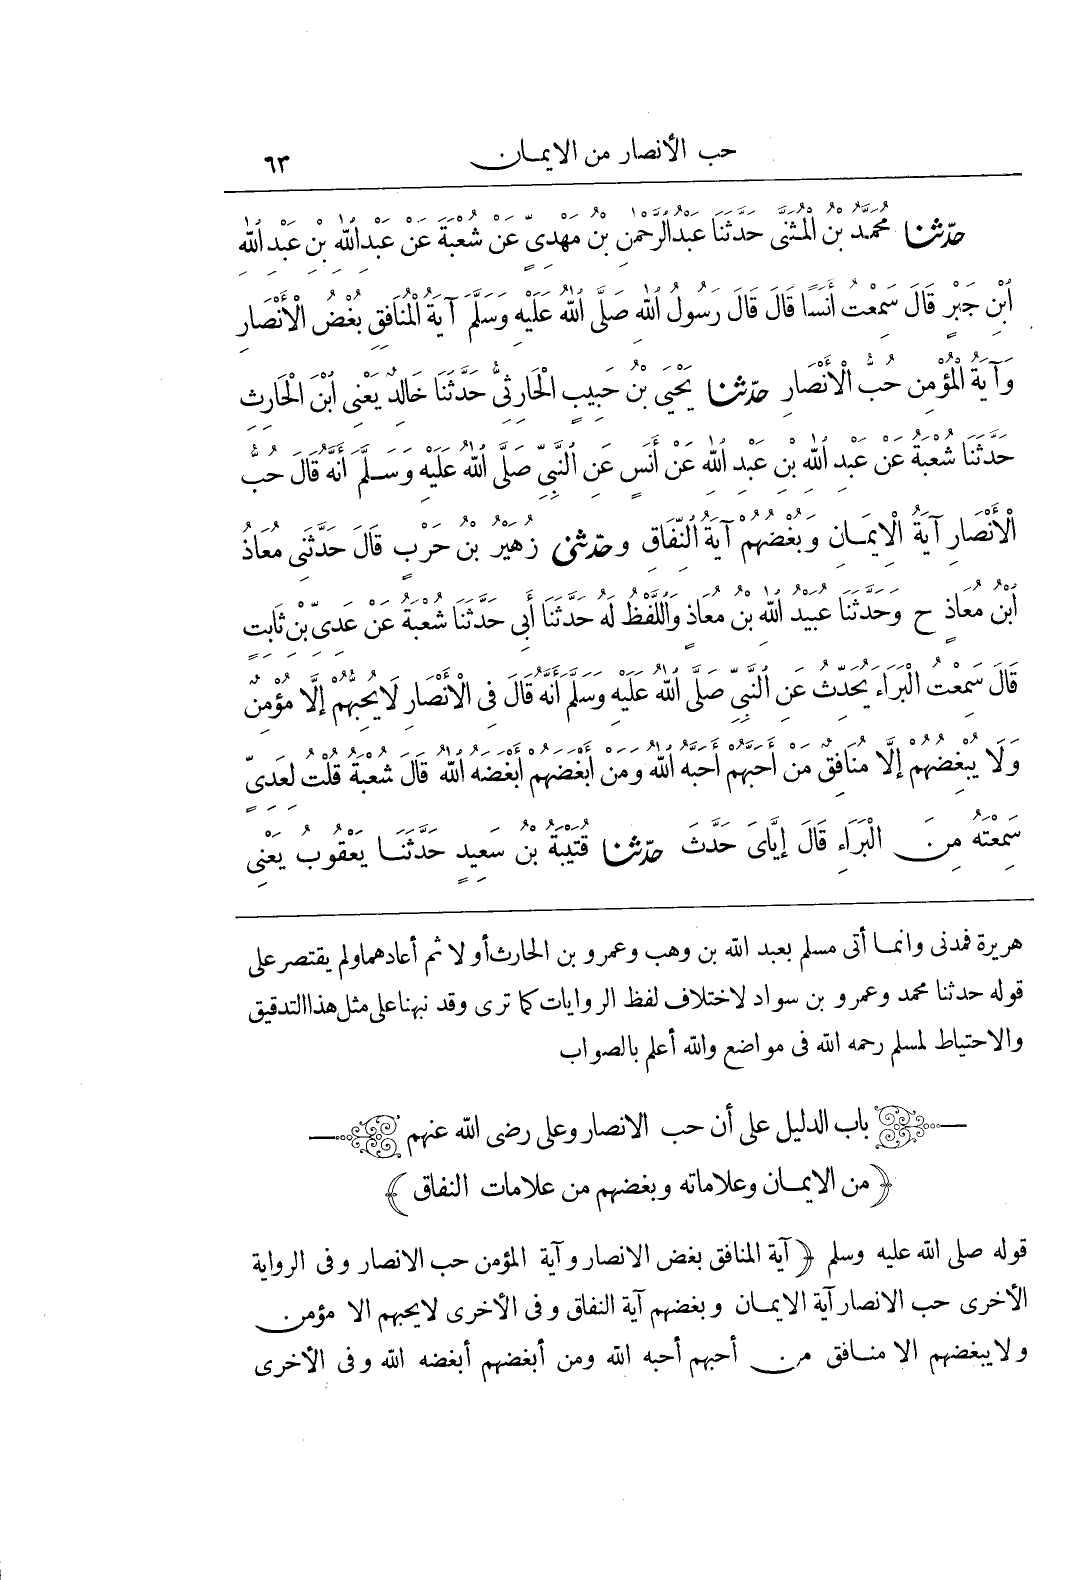 حب الأنصار من الايمان ٦٣
حدّثنا مُحَمَّدُ بْنُ الْمُثَنَّى حَدَّثَنَا عَبْدُ الرَّحْمٰنِ بْنُ مَهْدِيٍّ عَنْ شُعْبَةَ عَنْ عَبْدِ اللهِ بْنِ عَبْدِ اللهِ
ابْنِ جَبْرٍ قَالَ سَمِعْتُ أَنَسًا قَالَ قَالَ رَسُولُ اللهِ صَلَّى اللهُ عَلَيْهِ وَسَلَّمَ آيَةُ الْمُنَافِقِ بُغْضُ الْأَنْصَارِ
وَآيَةُ الْمُؤْمِنِ حُبُّ الْأَنْصَارِ حدّثنا يَحْيَى بْنُ حَبِيبٍ الْحَارِثِيُّ حَدَّثَنَا خَالِدٌ يَعْنِي ابْنَ الْحَارِثِ
حَدَّثَنَا شُعْبَةُ عَنْ عَبْدِ اللهِ بْنِ عَبْدِ اللهِ عَنْ أَنَسٍ عَنِ النَّبِيِّ صَلَّى اللهُ عَلَيْهِ وَسَلَّمَ أَنَّهُ قَالَ حُبُّ
الْأَنْصَارِ آيَةُ الْإِيمَانِ وَبُغْضُهُمْ آيَةُ النِّفَاقِ وحدّثنى زُهَيْرُ بْنُ حَرْبٍ قَالَ حَدَّثَنِي مُعَاذُ
ابْنُ مُعَاذٍ ح وَحَدَّثَنَا عُبَيْدُ اللهِ بْنُ مُعَاذٍ وَاللَّفْظُ لَهُ حَدَّثَنَا أَبِي حَدَّثَنَا شُعْبَةُ عَنْ عَدِيِّ بْنِ ثَابِتٍ
قَالَ سَمِعْتُ الْبَرَاءَ يُحَدِّثُ عَنِ النَّبِيِّ صَلَّى اللهُ عَلَيْهِ وَسَلَّمَ أَنَّهُ قَالَ فِي الْأَنْصَارِ لَا يُحِبُّهُمْ إِلَّا مُؤْمِنٌ
وَلَا يُبْغِضُهُمْ إِلَّا مُنَافِقٌ مَنْ أَحَبَّهُمْ أَحَبَّهُ اللهُ وَمَنْ أَبْغَضَهُمْ أَبْغَضَهُ اللهُ قَالَ شُعْبَةُ قُلْتُ لِعَدِيٍّ
سَمِعْتَهُ مِنَ الْبَرَاءِ قَالَ إِيَّايَ حَدَّثَ حدّثنا قُتَيْبَةُ بْنُ سَعِيدٍ حَدَّثَنَا يَعْقُوبُ يَعْنِي
هريرة فمدنى وانما أتى مسلم بعبد الله بن وهب وعمرو بن الحارث أولا ثم أعادهما ولم يقتصر على
قوله حدثنا محمد وعمرو بن سواد لاختلاف لفظ الروايات كما ترى وقد نبهنا على مثل هذا التدقيق
والاحتياط لمسلم رحمه الله فى مواضع والله أعلم بالصواب
باب الدليل على أن حب الانصار وعلى رضى الله عنهم
﴿من الايمان وعلاماته وبغضهم من علامات النفاق﴾
قوله صلى الله عليه وسلم ﴿آية المنافق بغض الانصار وآية المؤمن حب الانصار وفى الرواية
الأخرى حب الانصار آية الايمان وبغضهم آية النفاق وفى الأخرى لايحبهم الا مؤمن
ولايبغضهم الا منافق من أحبهم أحبه الله ومن أبغضهم أبغضه الله وفى الأخرى